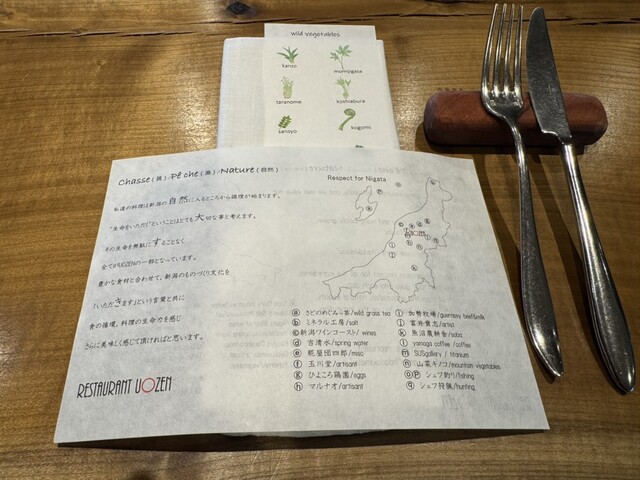 wild vegetables
kanzo
momijigasa
taranome
koshiabura
sansyo
kogomi
Chasse(猟)・Pêche(漁)・Nature(自然)
Respect for Niigata
私達の料理は新潟の自然に入るところから循環が始まります。
"生命をいただく"ということはとても大切な事と考えます。
その生命を無駄にすることなく
全てがUOZENの一部となっています。
豊かな食材と合わせて、新潟のものづくり文化を
「いただきます」という言葉と共に
食の循環、料理の生命力を感じ
さらに美味しく感じて頂ければと思います。
RESTAURANT UOZEN
UOZEN
ⓐ さどのめぐみっ茶/wild grass tea
ⓑ ミネラル工房/salt
ⓒ新潟ワインコースト/wines
ⓓ 吉清水/spring water
ⓔ 糀屋団四郎/miso
ⓕ 玉川堂/artisant
ⓖ ひよころ鶏園/eggs
ⓗ マルナオ/artisant
ⓘ 加勢牧場/guernsey beef&milk
ⓙ
ⓚ 魚沼農耕舎/soba
ⓛ yamaga coffee/coffee
ⓜ SUSgallery/titanium
ⓝ 山菜キノコ/mountain vegetables
ⓞⓟ シェフ釣り/fishing
ⓠ シェフ狩猟/hunting